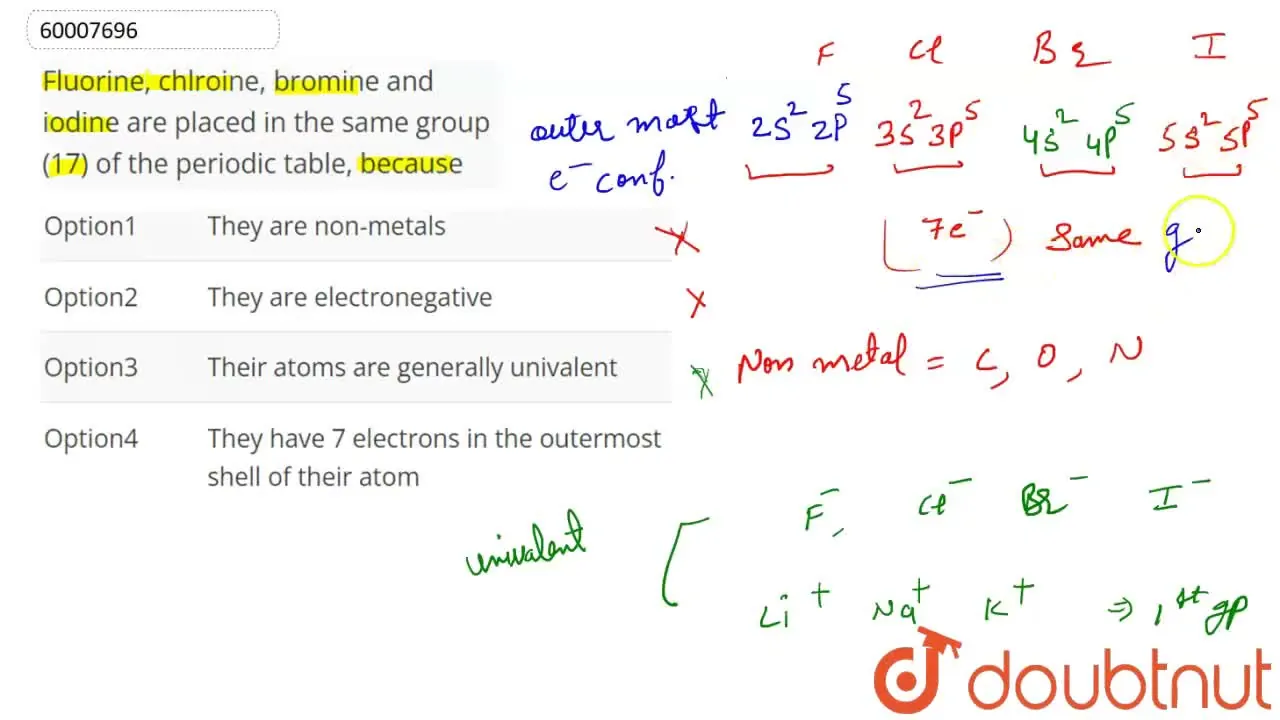 60007696
Fluorine, chlroine, bromine and
iodine are placed in the same group
(17) of the periodic table, because
Option1 They are non-metals
Option2 They are electronegative
Option3 Their atoms are generally univalent
Option4 They have 7 electrons in the outermost
shell of their atom
F Cl Br I
outer most 2s² 2p⁵ 3s² 3p⁵ 4s² 4p⁵ 5s² 5p⁵
e⁻ conf.
(7e⁻) Same g
Non metal = C, O, N
univalent
F⁻, Cl⁻ Br⁻ I⁻
Li⁺ Na⁺ K⁺ ⇒ 1st gp
doubtnut